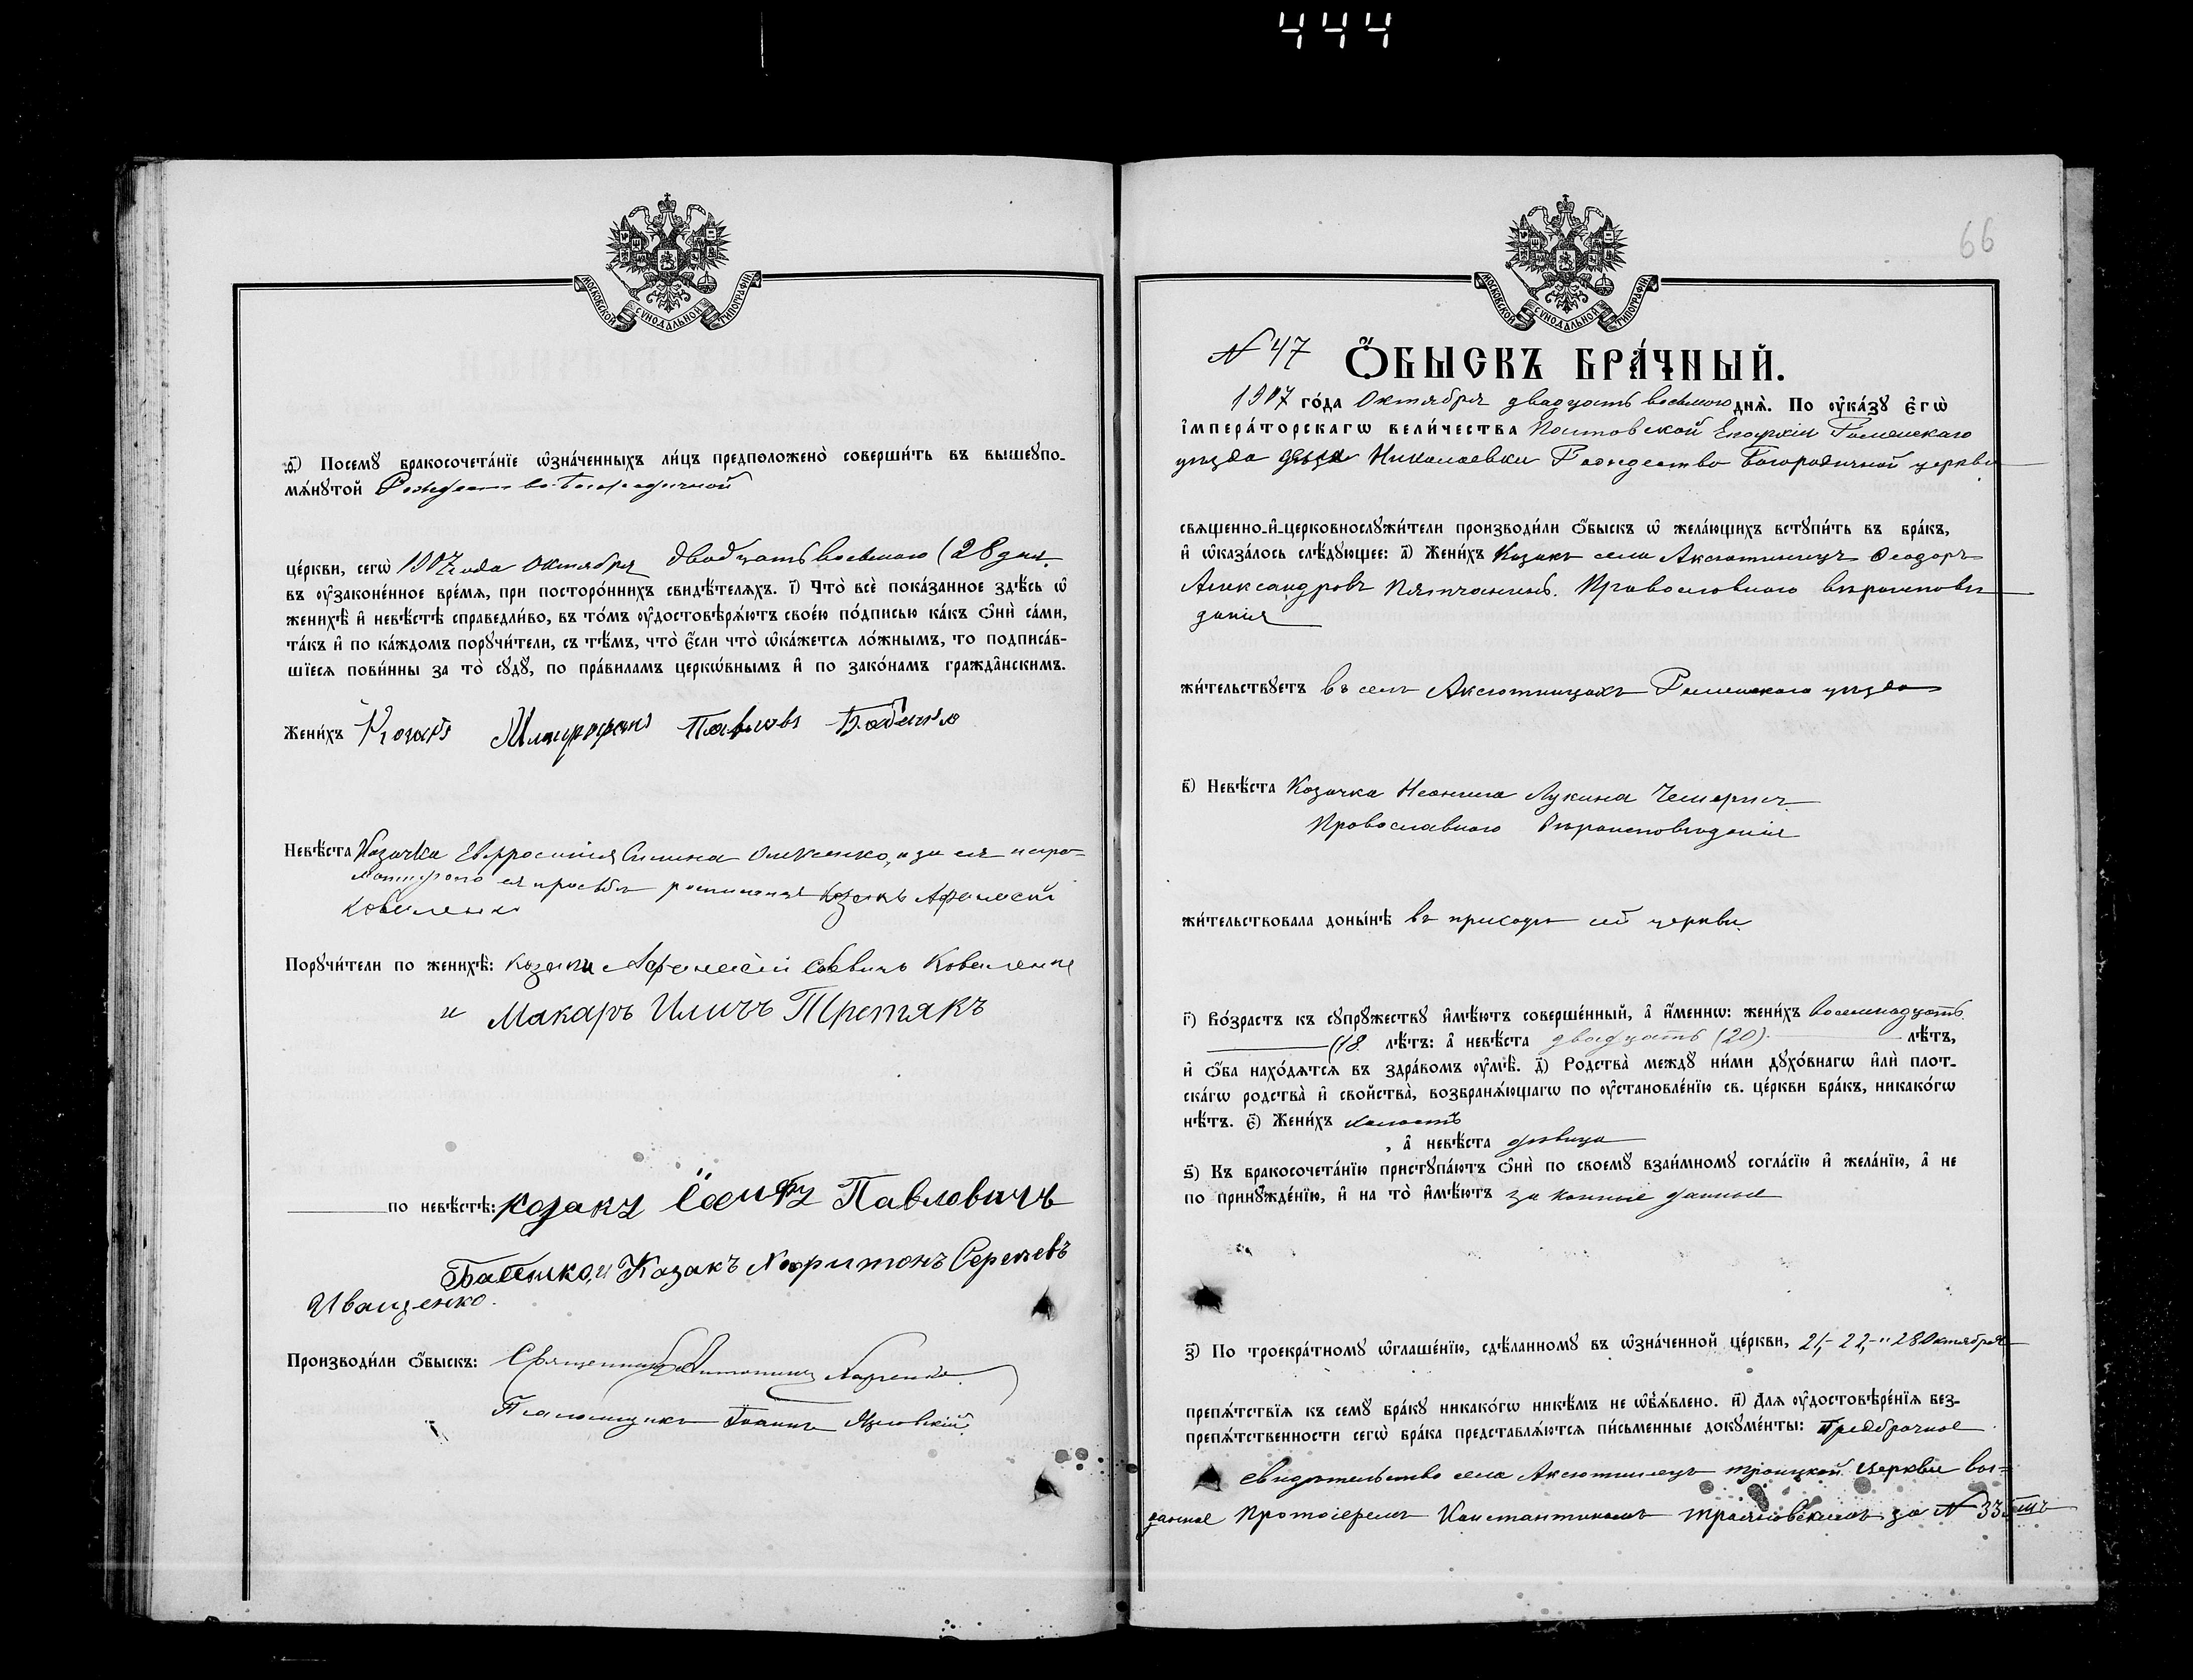 444
МОСКОВСКОЙ СѴНОДАЛЬНОЙ ТИПОГРАФІИ
ѳ҃) Посемꙋ бракосочета́нїе ѡ҆зна́ченныхъ ли́цъ предположено̀ соверши́ть въ вышеꙋпо-
мѧ́нꙋтой Рождество-Богородичной
це́ркви, сегѡ̀ 1907 года Октября двадцать восьмого (28 дня.
въ ᲂу҆законе́нное вре́мѧ, при посторо́ннихъ свидѣ́телѧхъ. і҃) Что̀ всѐ пока́занное здѣ́сь ѡ҆
женихѣ̀ и҆ невѣ́стѣ справедли́во, въ то́мъ ᲂу҆достовѣрѧ́ютъ свое́ю по́дписью ка́къ ѻ҆нѝ са́ми,
та́къ и҆ по ка́ждомъ порꙋчи́тели, съ тѣ́мъ, что̀ є҆́сли что̀ ѡ҆ка́жетсѧ ло́жнымъ, то подписа́в-
шїесѧ пови́нны за то̀ сꙋдꙋ̀, по пра́виламъ церко́внымъ и҆ по зако́намъ гражда́нскимъ.
Жени́хъ Козакъ Митрофанъ Павловъ Бабенко
Невѣ́ста Козачка Евфросинія Олексенко, а за ея негра-
мотную по ея просьбѣ росписался козакъ Афанасій
Коваленко
Порꙋчи́тели по женихѣ̀: козаки Афанасій Саввичъ Коваленко
и Макаръ Иличъ Третякъ
по невѣ́стѣ: козакъ Павловичъ
и Козакъ Харитонъ Сергеевъ
Иващенко.
Производи́ли ѻ҆́быскъ: Священникъ Антоній
Псаломщикъ Іоаннъ
66
МОСКОВСКОЙ СѴНОДАЛЬНОЙ ТИПОГРАФІИ
N 47 Ѻ҆́БЫСКЪ БРА́ЧНЫЙ.
1907 го́да Октября двадцать восьмого днѧ̀. По ᲂу҆ка́зꙋ є҆гѡ̀
і҆мпера́торскагѡ вели́чества Полтавской Епархіи Роменскаго
уѣзда Николаевки Рождество Богородичной церкви
свѧще́нно-и҆-церковнослꙋжи́тели производи́ли ѻ҆́быскъ ѡ҆ жела́ющихъ встꙋпи́ть въ бра́къ,
и҆ ѡ҆каза́лось слѣ́дꙋющее: а҃) Жени́хъ Козакъ села Аксютинецъ Ѳеодоръ
Александровъ Пятчанинъ. Православного вѣроисповѣ
данія
жи́тельствꙋетъ въ селѣ Аксютинцахъ Роменскаго уѣзда
в҃) Невѣ́ста Козачка Неонила Лукина Чемерисъ
Православного Вѣроисповѣданія
жи́тельствовала доны́нѣ въ приходѣ сей церкви.
г҃) Во́зрастъ къ сꙋпрꙋ́жествꙋ и҆мѣ́ютъ соверше́нный, а҆ и҆́менно: жени́хъ восемнадцать
(18 лѣ́тъ: а҆ невѣ́ста двадцать (20) лѣ́тъ,
и҆ ѻ҆́ба нахо́дѧтсѧ въ здра́вомъ ᲂу҆мѣ̀. д҃) Родства̀ междꙋ ни́ми дꙋхо́внагѡ и҆лѝ плот-
ска́гѡ родства̀ и҆ свойства̀, возбранѧ́ющагѡ по ᲂу҆становле́нїю св. це́ркви бра́къ, никако́гѡ
нѣ́тъ. є҃) Жени́хъ холостъ
, а҆ невѣ́ста дѣвица
ѕ҃) Къ бракосочета́нїю пристꙋпа́ютъ ѻ҆нѝ по своемꙋ̀ взаи́мномꙋ согла́сїю и҆ жела́нїю, а҆ не
по принꙋжде́нїю, и҆ на то̀ и҆мѣ́ютъ законные данные
з҃) По троекра́тномꙋ ѡ҆глаше́нїю, сдѣ́ланномꙋ въ ѡ҆зна́ченной це́ркви, 21,- 22,-"28 Октября
препѧ́тствїѧ къ семꙋ̀ бра́кꙋ никако́гѡ никѣ́мъ не ѡ҆бъѧ́влено. и҃) Длѧ ᲂу҆достовѣре́нїѧ без-
препѧ́тственности сегѡ̀ бра́ка представлѧ́ютсѧ пи́сьменные докꙋме́нты: Предбрачное
свидѣтельство села Аксютинецъ Троицкой церкви вы=
данное Протоіереемъ Константиномъ за N 335мъ